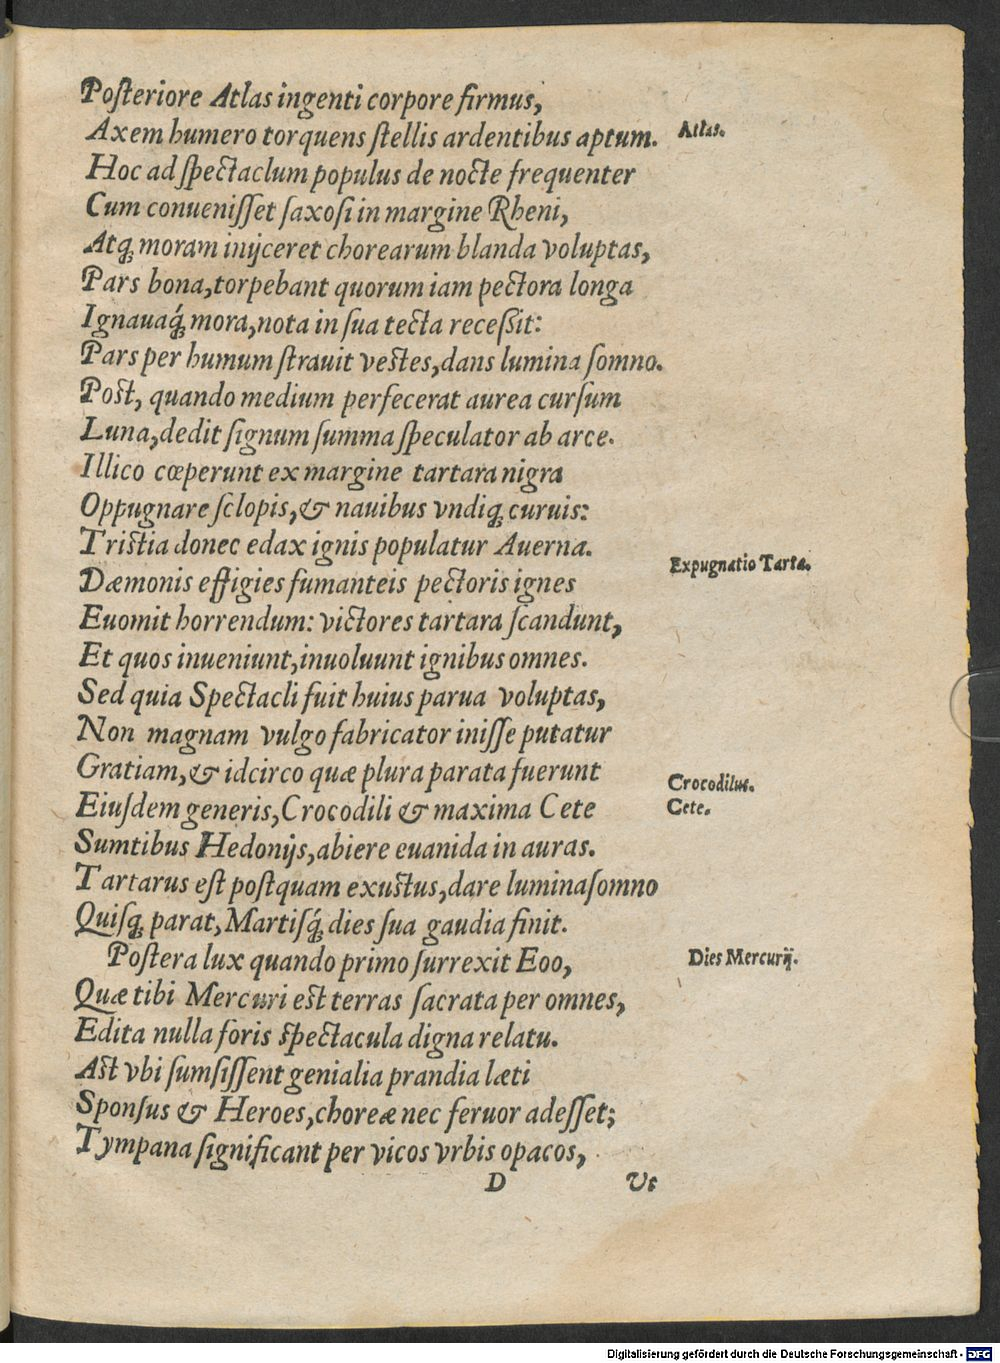 Posteriore Atlas ingenti corpore firmus,
Axem humero torquens stellis ardentibus aptum.
Atlas.
Hoc ad spectaclum populus de nocte frequenter
Cum conuenisset saxosi in margine Rheni,
Atq; moram inijceret chorearum blanda voluptas,
Pars bona, torpebant quorum iam pectora longa
Ignauaq́; mora, nota in sua tecta recessit:
Pars per humum strauit vestes, dans lumina somno.
Post, quando medium perfecerat aurea cursum
Luna, dedit signum summa speculator ab arce.
Illico cœperunt ex margine tartara nigra
Oppugnare sclopis, & nauibus vndiq; curuis:
Tristia donec edax ignis populatur Auerna.
Expugnatio Tarta.
Dæmonis effigies fumanteis pectoris ignes
Euomit horrendum: victores tartara scandunt,
Et quos inueniunt, inuoluunt ignibus omnes.
Sed quia Spectacli fuit huius parua voluptas,
Non magnam vulgo fabricator inisse putatur
Gratiam, & idcirco quæ plura parata fuerunt
Crocodilus.
Eiusdem generis, Crocodili & maxima Cete
Cete.
Sumtibus Hedonijs, abiere euanida in auras.
Tartarus est postquam exustus, dare lumina somno
Quisq; parat, Martisq́; dies sua gaudia finit.
Postera lux quando primo surrexit Eoo,
Dies Mercurij.
Quæ tibi Mercuri est terras sacrata per omnes,
Edita nulla foris spectacula digna relatu.
Ast vbi sumsissent genialia prandia læti
Sponsus & Heroes, choreæ nec feruor adesset;
Tympana significant per vicos vrbis opacos,
D Vt
Digitalisierung gefördert durch die Deutsche Forschungsgemeinschaft - DFG